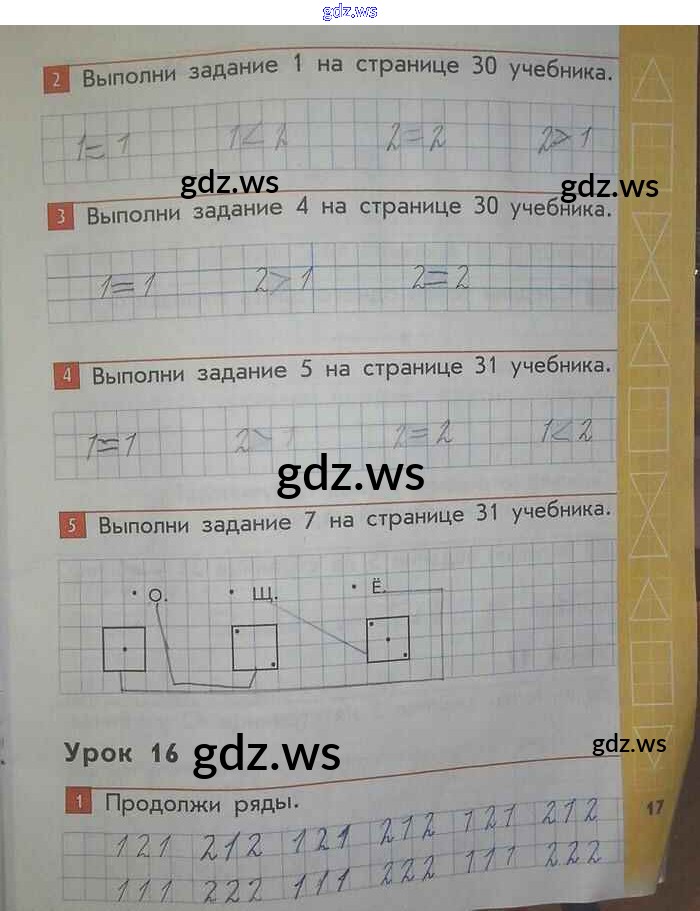 gdz.ws
2 Выполни задание 1 на странице 30 учебника.
1=1 1<2 2=2 2>1
gdz.ws gdz.ws
3 Выполни задание 4 на странице 30 учебника.
1=1 2>1 2=2
4 Выполни задание 5 на странице 31 учебника.
1=1 2>1 2=2 1<2
gdz.ws
5 Выполни задание 7 на странице 31 учебника.
О. Щ. Ё.
Урок 16 gdz.ws gdz.ws
1 Продолжи ряды. 17
121 212 121 212 121 212
111 222 111 222 111 222